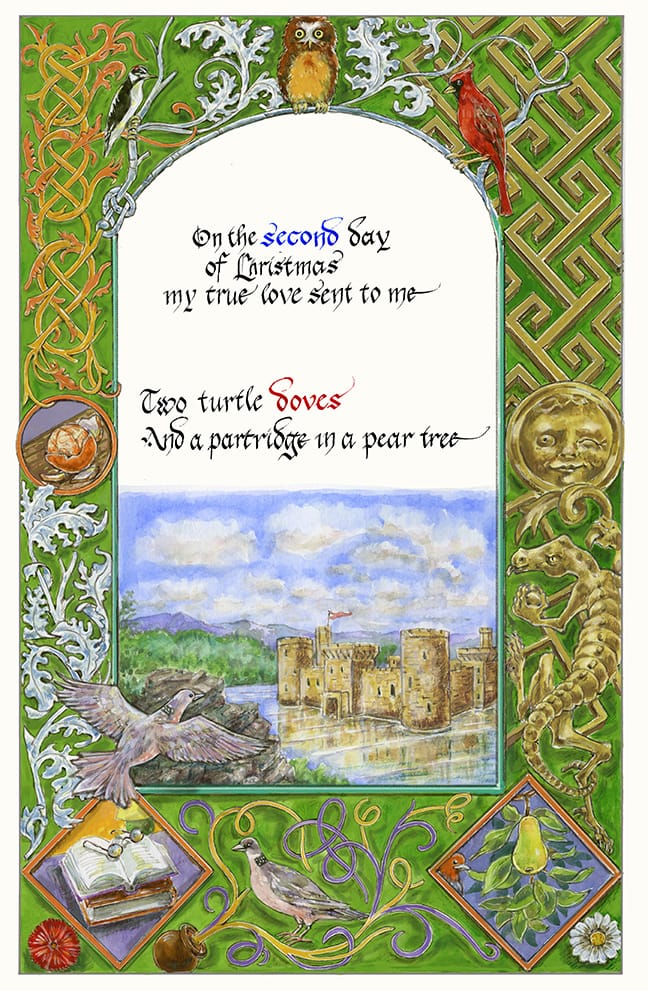 On the second day
of Christmas
my true love sent to me
Two turtle doves
And a partridge in a pear tree